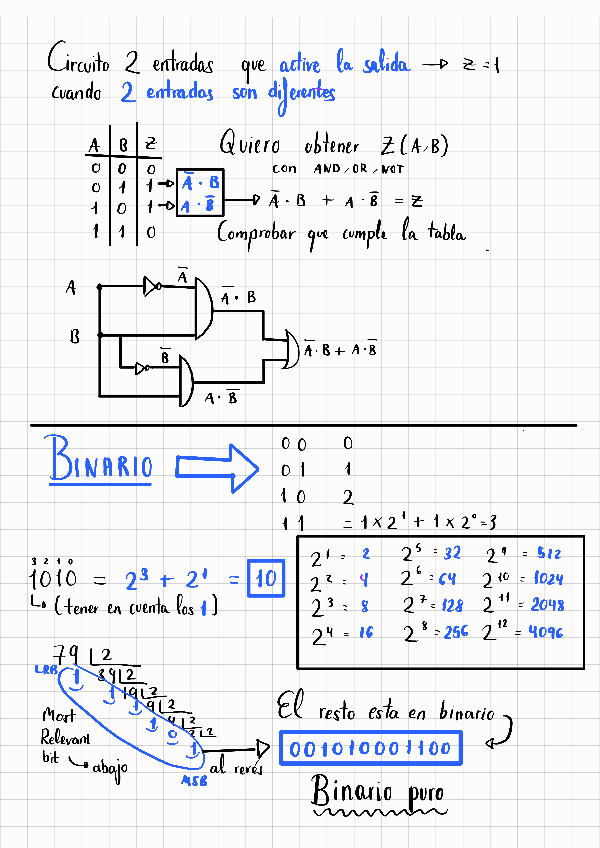 Circuito 2 entradas que active la salida → z = 1
cuando 2 entradas son diferentes
A B Z
0 0 0
0 1 1 → Ā · B
1 0 1 → A · B̄
1 1 0
Quiero obtener Z(A,B)
con AND/OR/NOT
→ Ā · B + A · B̄ = Z
Comprobar que cumple la tabla
A
Ā
Ā · B
B
B̄
Ā · B + A · B̄
A · B̄
BINARIO
0 0 0
0 1 1
1 0 2
1 1 = 1 x 2¹ + 1 x 2⁰ = 3
3 2 1 0
1010 = 2³ + 2¹ = 10
↳ (tener en cuenta los 1)
2¹ = 2 2⁵ = 32 2⁹ = 512
2² = 4 2⁶ = 64 2¹⁰ = 1024
2³ = 8 2⁷ = 128 2¹¹ = 2048
2⁴ = 16 2⁸ = 256 2¹² = 4096
79 2
LRB 1 39 2
1 19 2
1 9 2
1 4 2
0 2 2
0 1
MSB
Most
Relevant
bit → abajo
al revés
El resto esta en binario
001010001100
Binario puro